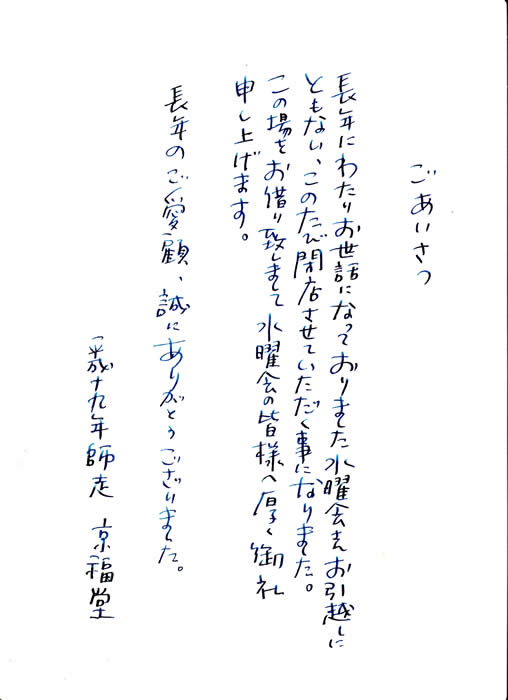 ごあいさつ
長年にわたりお世話になっておりました水曜会さんお引越しに
ともない、このたび閉店させていただく事になりました。
この場をお借り致しまして水曜会の皆様へ厚く御礼
申し上げます。
長年のご愛顧、誠にありがとうございました。
平成十九年師走 京福堂